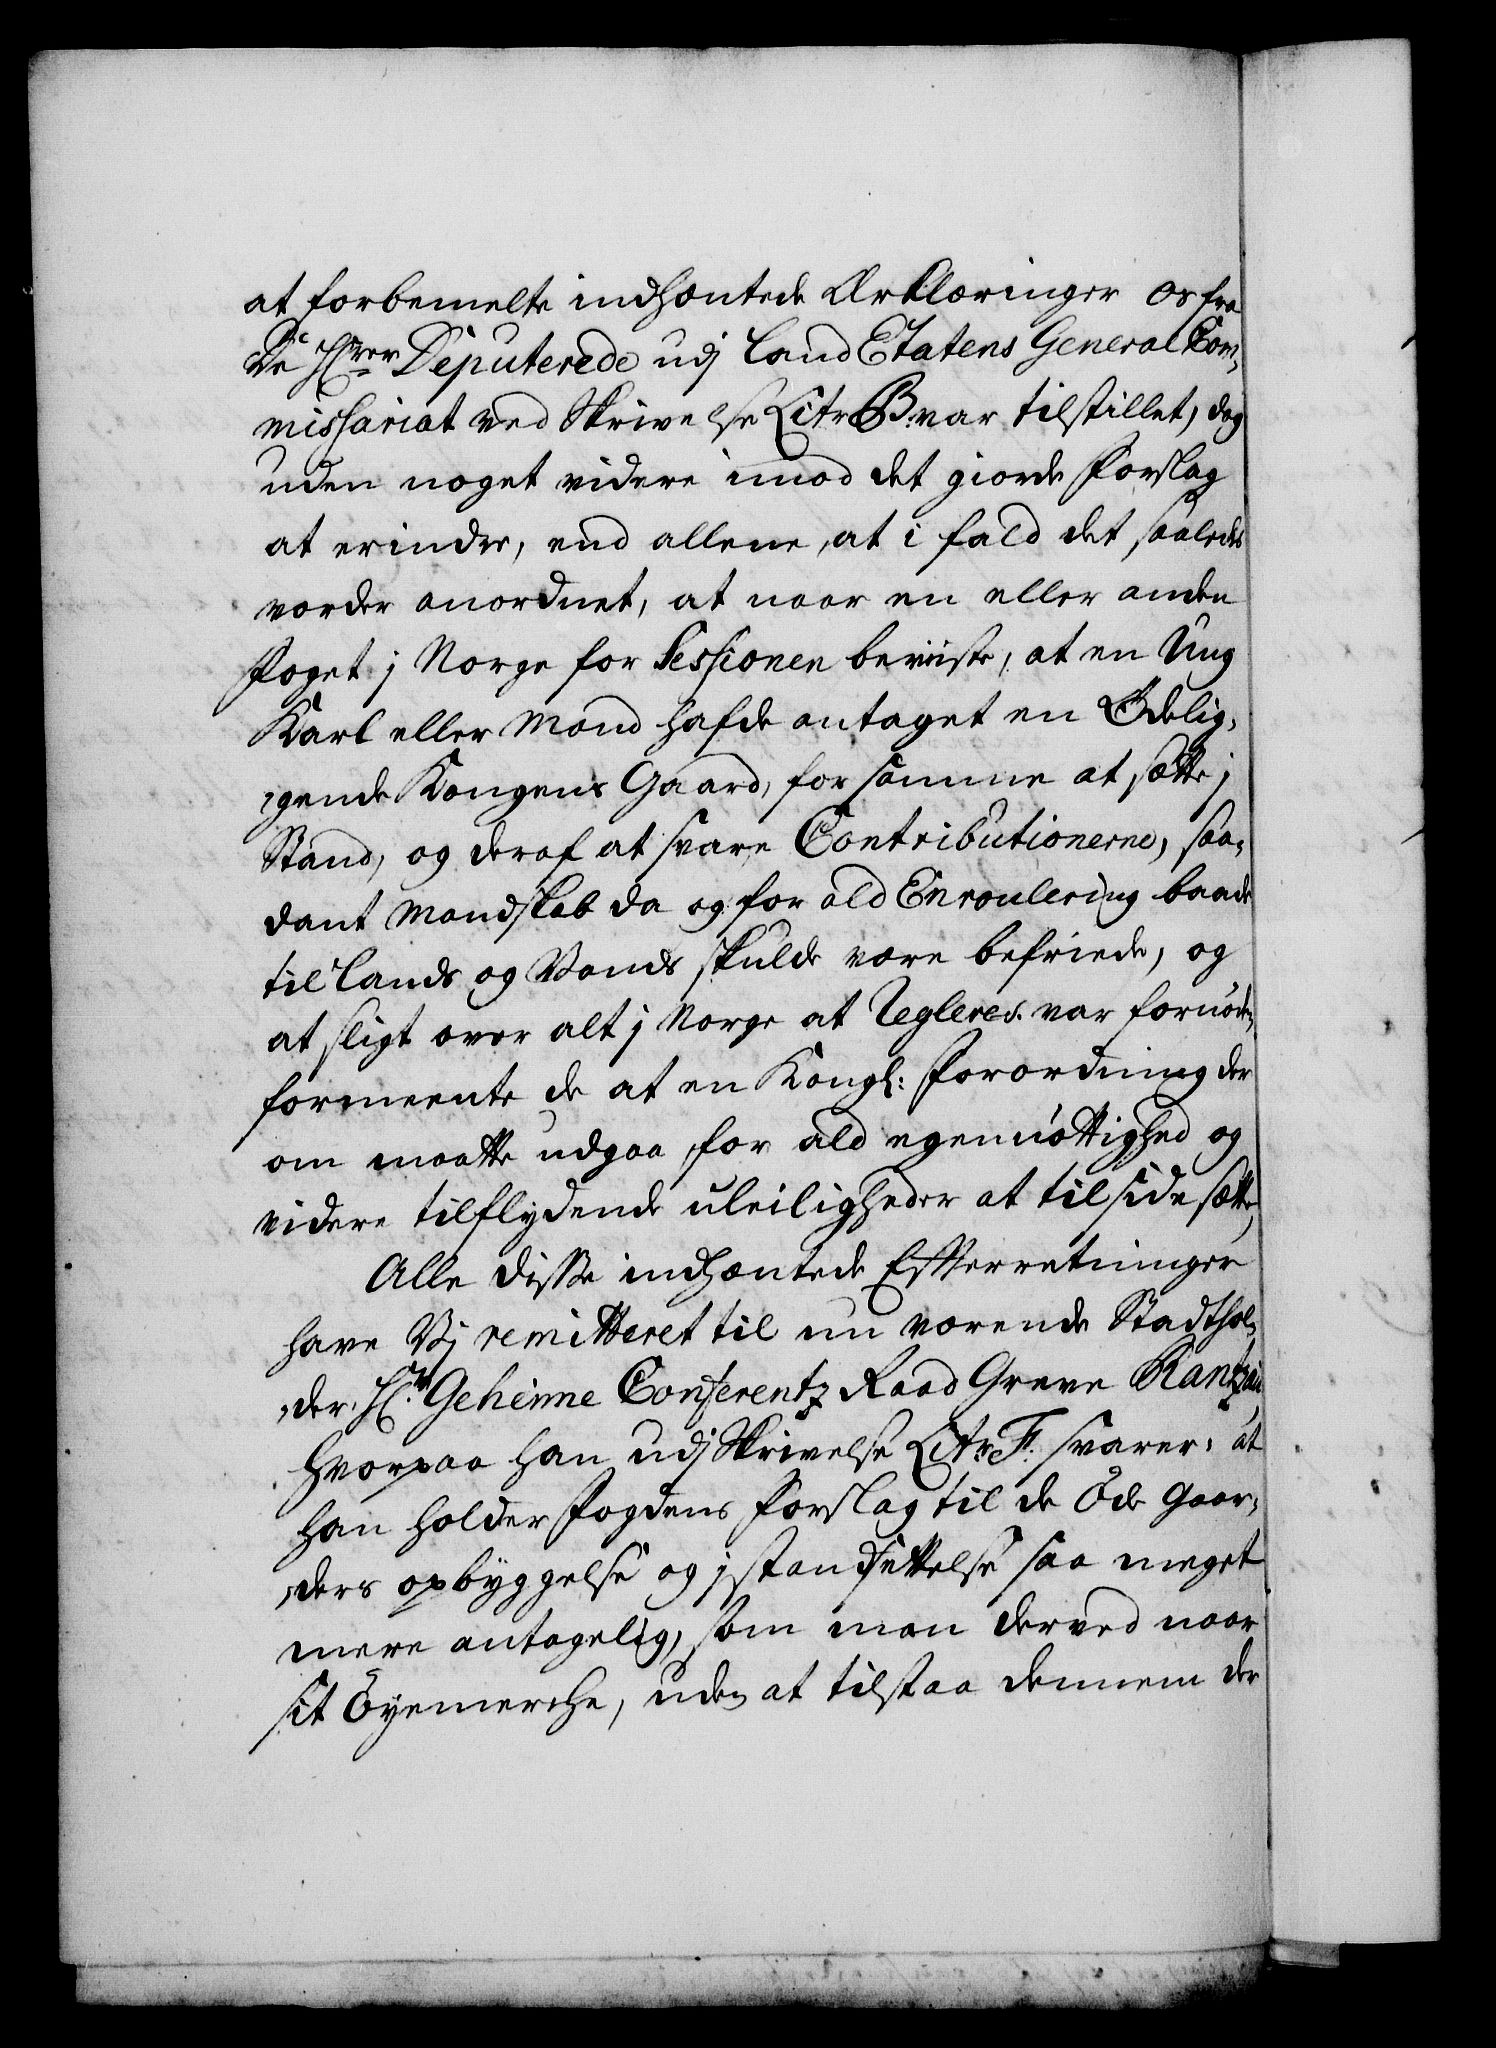 at forbemelte indhæntede Erklæringer os fra
De Hrrer Deputerede udj Land Etatens General Com-
missariat ved Skrivelse Litr B. var tilstillet, dog
uden noget videre imod det giorde Forslag
at erindre, end allene, at i fald det saaledes
vorder anordnet, at naar en eller anden
Foget j Norge for Sessionen beviiste, at en Ung
Karl eller Mand hafde antaget en Ödelig-
gende Kongens Gaard, for samme at sætte j
Stand, og deraf at svare Contributionerne, saa-
dant Mandskab da og for ald Enroulering baade
til Lands og Vands skulde være befriede, og
at sligt over alt j Norge at Regleres var fornöden,
formeente de at en Kongl: Forordning der
om maatte udgaa, for ald egennöttighed og
videre tilflydende uleiligheder at tilside sætte,
Alle disse indhæntede Efterretninger
have Vj remitteret til nu værende Stadthol-
der Hr. Geheime Conferentz Raad Greve Rantzau
hvorpaa han udj Skrivelse Litr F. svarer: at
han holder Fogdens Forslag til de Öde Gaar-
ders opbyggelse og jstandsettelse saa meget
mere antagelig, som man derved naar
sit Öyemerche, uden at tilstaa dennem der